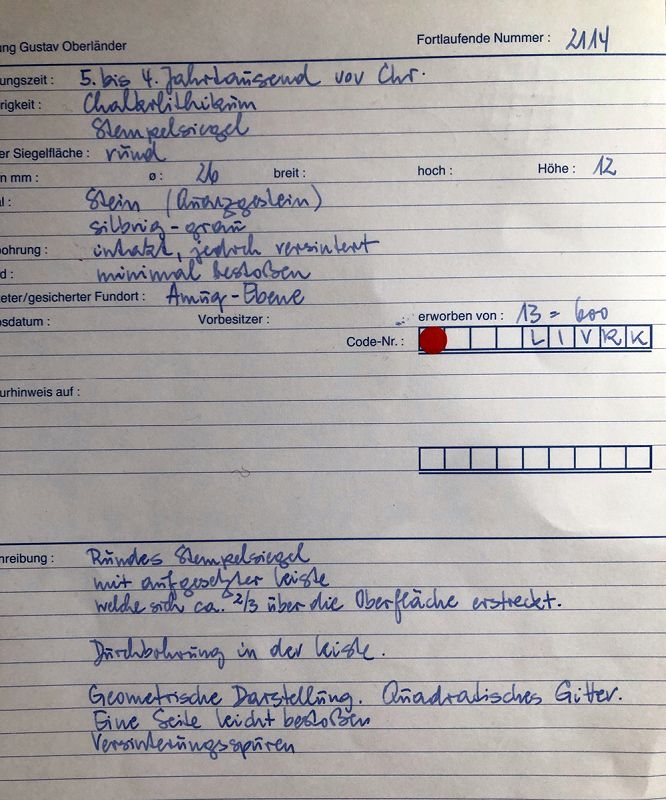 ng Gustav Oberländer
Fortlaufende Nummer : 2114
ungszeit : 5. bis 4. Jahrtausend vor Chr.
rigkeit : Chalkolithikum
Stempelsiegel
er Siegelfläche : rund
n mm : ø : 26 breit : hoch : Höhe : 12
l : Stein (Quarzgestein)
silbrig-grau
ohrung : intakt, jedoch versintert
d : minimal bestoßen
eter/gesicherter Fundort : Amuq-Ebene
osdatum : Vorbesitzer : erworben von : 13 = 600
Code-Nr. : L I V R K
urhinweis auf :
hreibung : Rundes Stempelsiegel
mit aufgesetzter Leiste
welche sich ca. 2/3 über die Oberfläche erstreckt.
Durchbohrung in der Leiste.
Geometrische Darstellung. Quadratisches Gitter.
Eine Seite leicht bestoßen
Versinterungsspuren